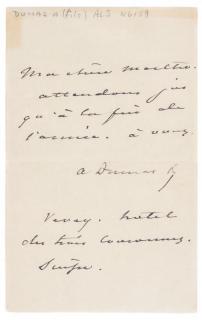 DUMAS A (fils) ALS N6159
Ma chère maître.
attendons jus
qu'à la fin de
l'année. à vous
A Dumas f
Vevey. hotel
des trois couronnes.
Suisse.